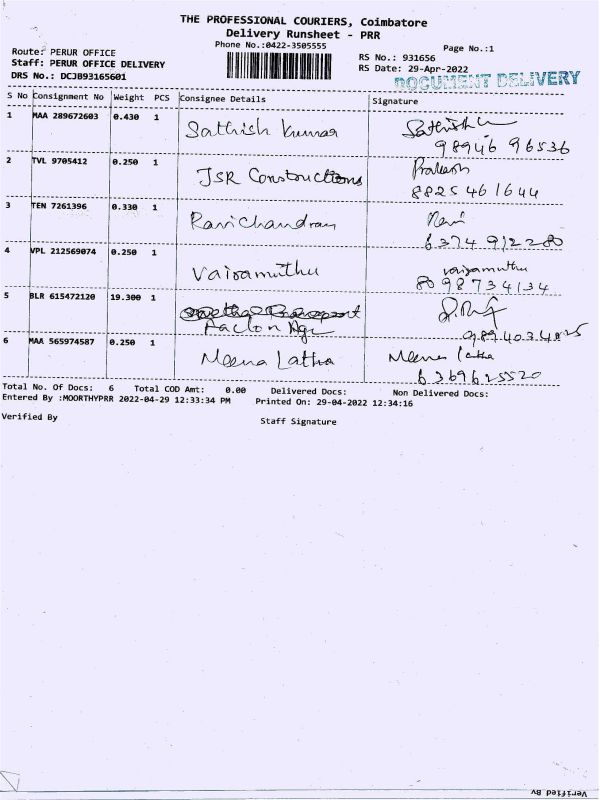 THE PROFESSIONAL COURIERS, Coimbatore
Delivery Runsheet - PRR
Phone No.:0422-3505555
Page No.:1
Route: PERUR OFFICE
RS No.: 931656
Staff: PERUR OFFICE DELIVERY
RS Date: 29-Apr-2022
DRS No.: DCJB93165601
DOCUMENT DELIVERY
S No Consignment No Weight PCS Consignee Details Signature
1 MAA 289672603 0.430 1 Sathish Kumar Sathish
98946 96536
2 TVL 9705412 0.250 1 JSR Constructions Prakash
8825 461644
3 TEN 7261396 0.330 1 Ravichandran Ravi
6374 912280
4 VPL 212569074 0.250 1 Vairamuthu vairamuthu
8098734134
5 BLR 615472120 19.300 1
9894034825
6 MAA 565974587 0.250 1 Meena Latha Meena latha
6369625520
Total No. Of Docs: 6 Total COD Amt: 0.00 Delivered Docs: Non Delivered Docs:
Entered By :MOORTHYPRR 2022-04-29 12:33:34 PM Printed On: 29-04-2022 12:34:16
Verified By Staff Signature
Verified By